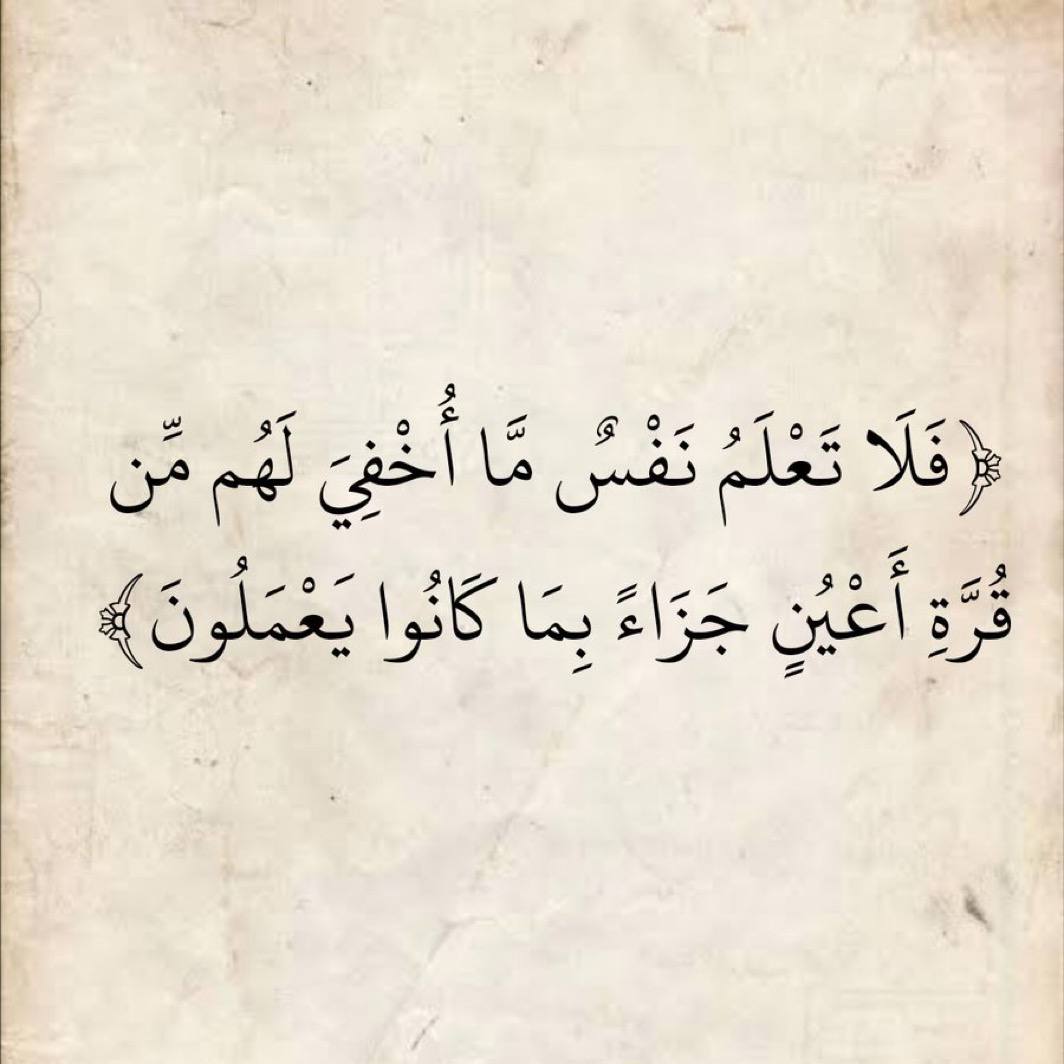 ﴿فَلَا تَعْلَمُ نَفْسٌ مَّا أُخْفِيَ لَهُم مِّن
قُرَّةِ أَعْيُنٍ جَزَاءً بِمَا كَانُوا يَعْمَلُونَ﴾